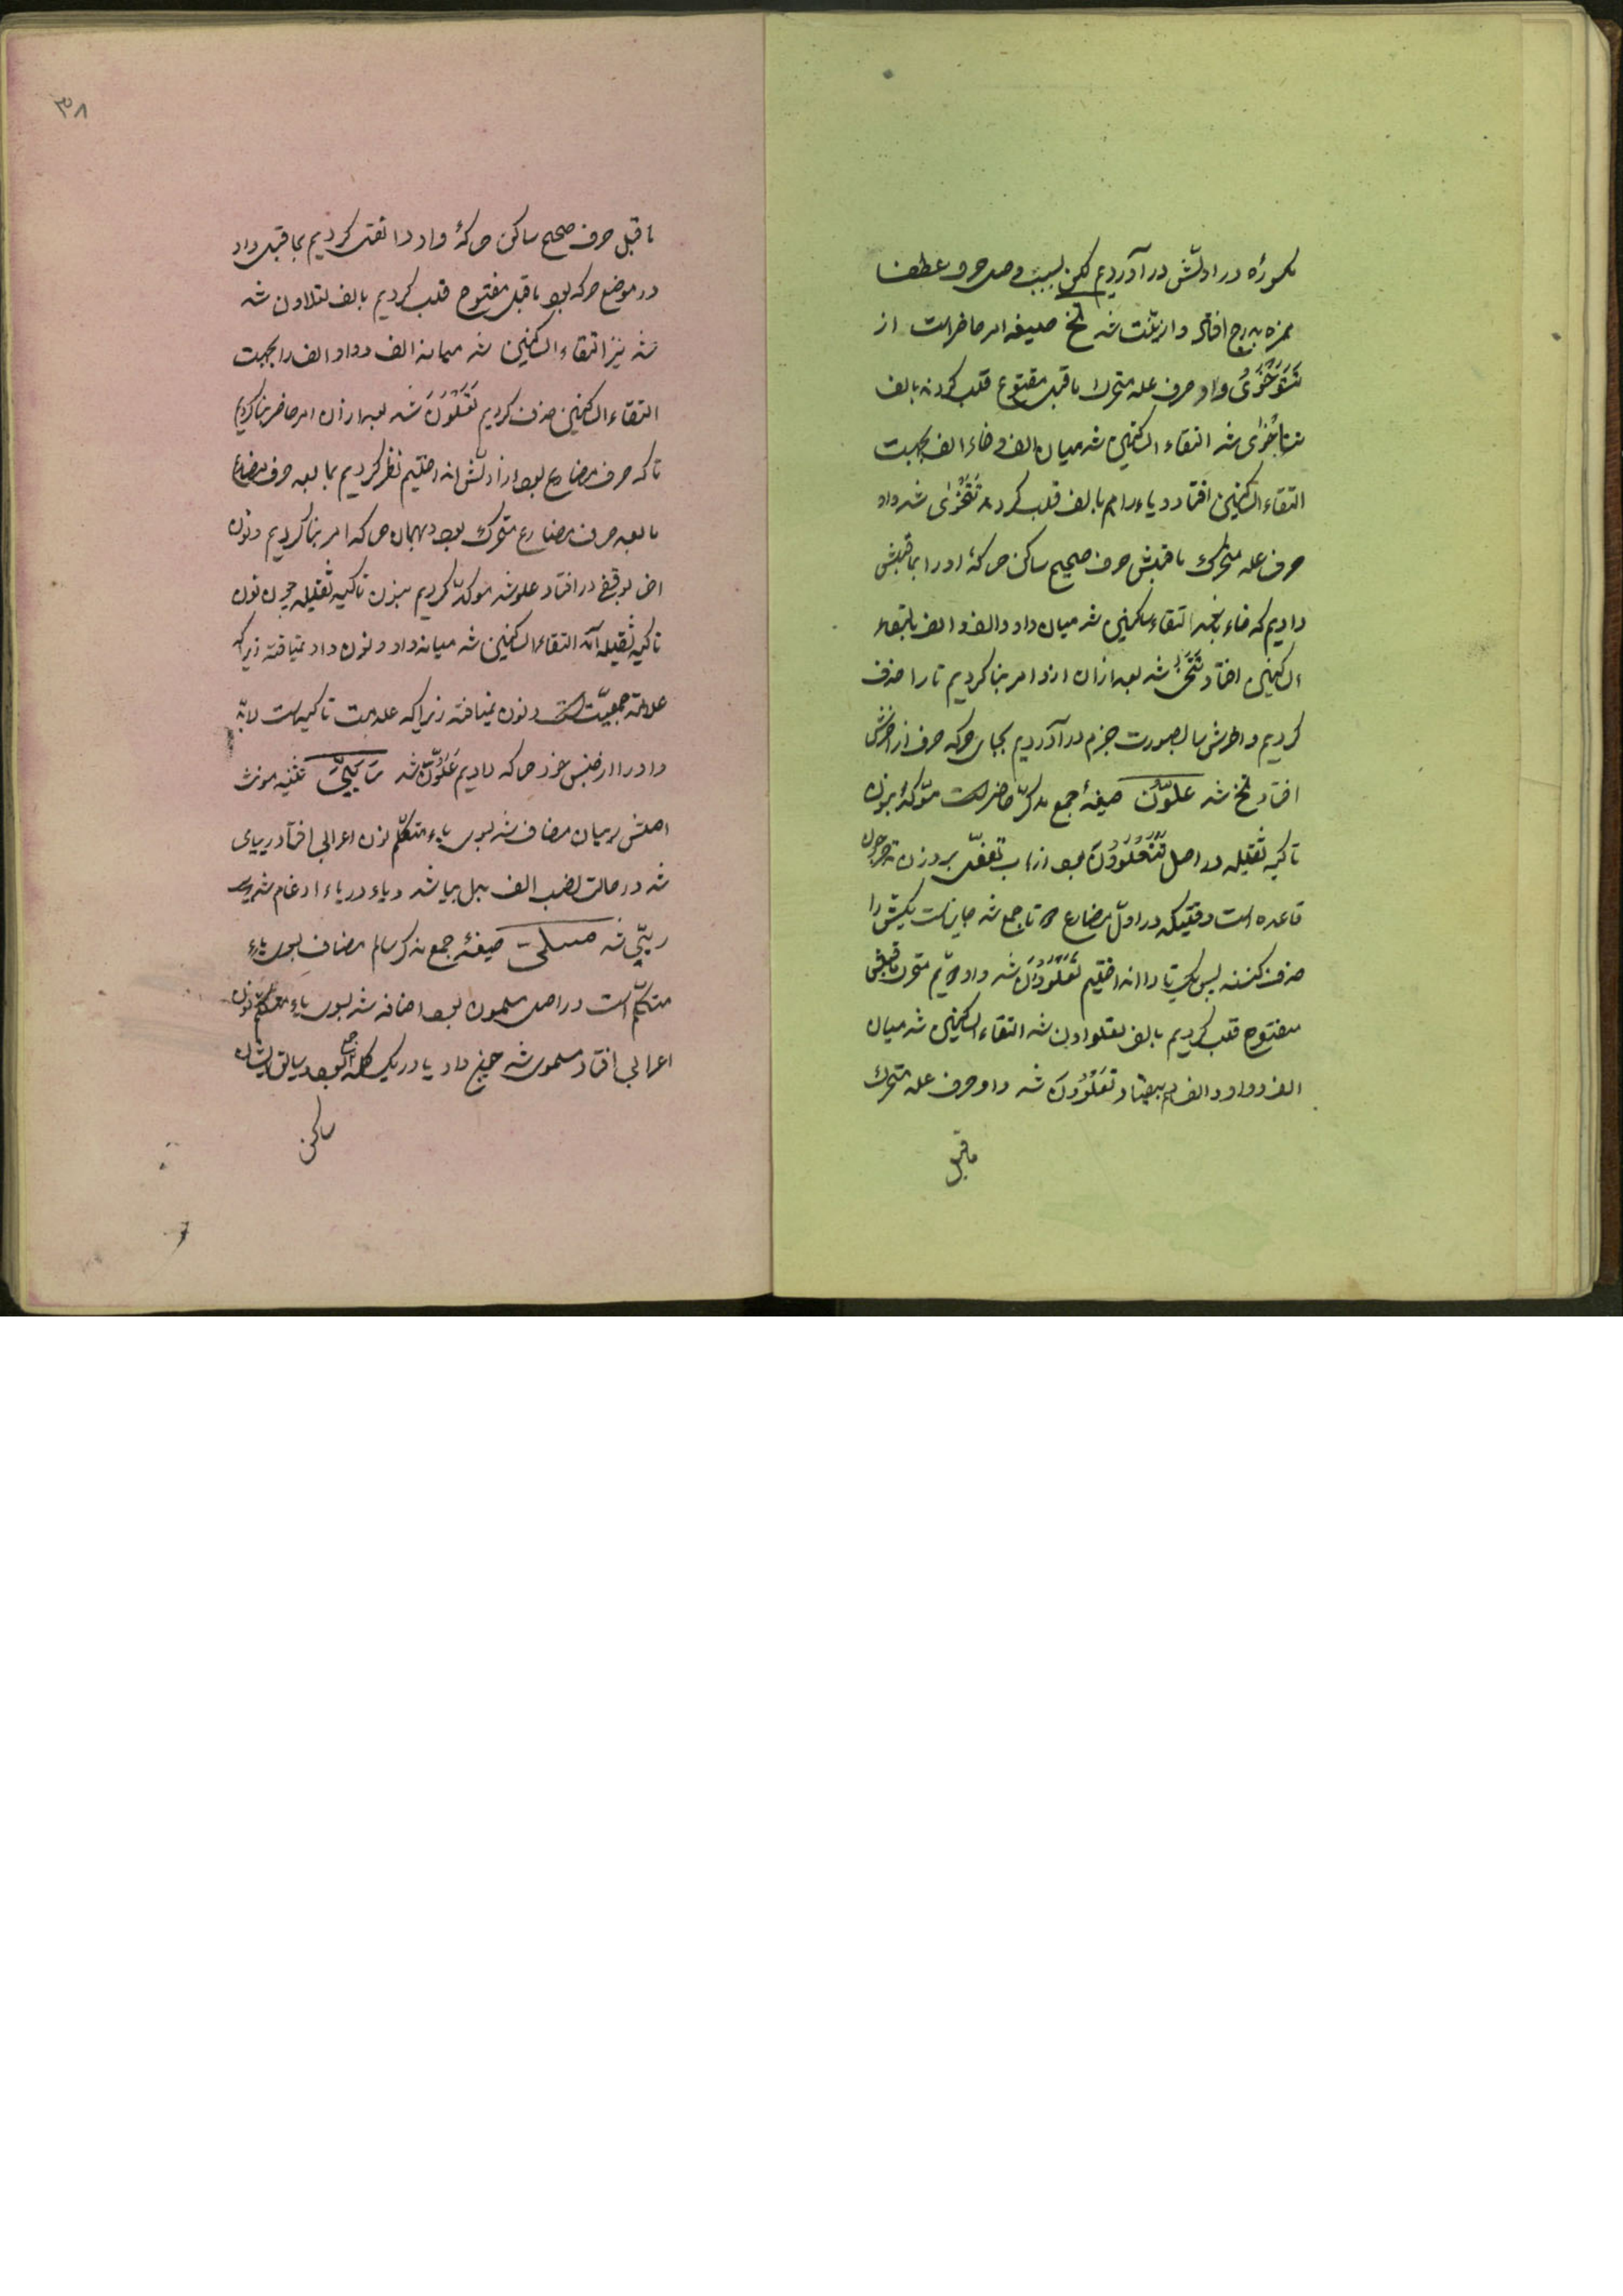 مکسوره در اولش در آوردیم لکن بسبب وصل حرف عطف
همزه بدرج افتاد وازینت شد تخ صیغه امر حاضر است از
تتوخوی واو حرف عله متحرک ماقبل مفتوح قلب کردند بالف
شد التقاء الساکنین شد میان الف و خاء الف بجهت
التقاء الساکنین افتاد و یاء را هم بالف قلب کردند شد واو
حرف عله متحرک ماقبلش حرف صحیح ساکن حرکهٔ او را بماقبلش
دادیم که خاء باشد التقاء ساکنین شد میان واو و الف و الف بالتقاء
الساکنین افتاد تتخ شد بعد از آن ازو امر بنا کردیم تا را حذف
کردیم و آخرش را بصورت جزم در آوردیم بجای حرکه حرف از آخرش
افتاد تخ شد علوّن صیغهٔ جمع مذکر حاضر است مؤکد بنون
تاکید ثقیله در اصل تتعلوون بود از باب تفعّل بر وزن
قاعده است وقتیکه در اول مضارع دو تا جمع شد جایز است یکیش را
حذف کنند پس یک تا را انداختیم تعلوون شد واو دویّم متحرک ماقبلش
مفتوح قلب کردیم بالف شد التقاء الساکنین شد میان
الف و واو و الف هم بیفتاد تعلوون شد واو حرف عله متحرک
ماقبل
۳۸
ماقبل حرف صحیح ساکن حرکهٔ واو را نقل کردیم بماقبل واو
در موضع حرکه بود ماقبل مفتوح قلب کردیم بالف شد
شد نیز التقاء الساکنین شد میانه الف و واو الف را بجهت
التقاء الساکنین حذف کردیم تعلون شد بعد از آن امر حاضر بنا کردیم
تا که حرف مضارع بود از اولش انداختیم نظر کردیم بما بعد حرف مضارع
ما بعد حرف مضارع متحرک بود بهمان حرکه امر بنا کردیم و نون
آخر بوقفی در افتاد علو شد مؤکد کردیم بنون تاکید ثقیله چون نون
تاکید ثقیله آمد التقاء الساکنین شد میانه واو و نون واو نمیافتد زیراکه
علامة جمعیّت است و نون نمیافتد زیراکه علامت تاکید است لابد
واو را از جنس خود حرکه دادیم علوّن شد تثنیه مونث
اصلش ربیان مضاف شد بسوی یاء متکلّم نون اعرابی افتاد ربیای
شد در حالت نصب الف بدل بیا شد و یاء در یاء ادغام شد
ربیّی شد مسلمی صیغهٔ جمع مذکر سالم مضاف بسوی یاء
متکلّم است در اصل مسلمون بود اضافه شد بسوی یاء متکلم نون
اعرابی افتاد مسلموی شد چون واو یا در یک کلمه جمع بود سابق ایشان
ساکن